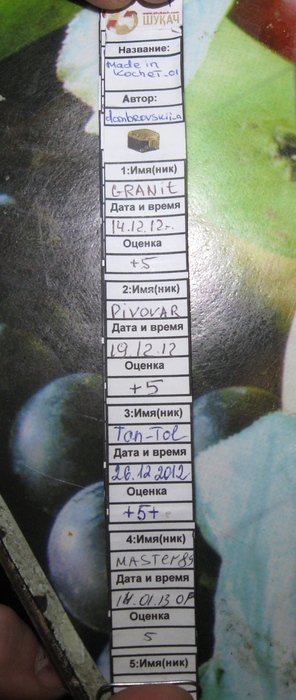 ШУКАЧ
Название:
Made in
Kochet_01
Автор:
dombrovskij_a
1:Имя(ник)
GRANit
Дата и время
14.12.12г.
Оценка
+5
2:Имя(ник)
PIVOVAR
Дата и время
19.12.12
Оценка
+5
3:Имя(ник)
Tan-Tol
Дата и время
26.12.2012
Оценка
+5+
4:Имя(ник)
MASTER89
Дата и время
14.01.13
Оценка
5
5:Имя(ник)